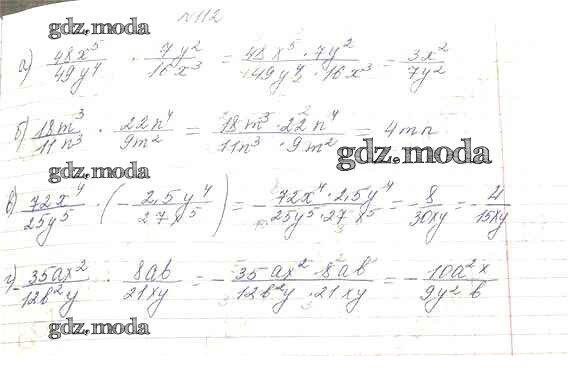 №112
gdz.moda
а) 48x⁵/49y⁴ · 7y²/16x³ = 48x⁵·7y²/49y⁴·16x³ = 3x²/7y²
б) 18m³/11n³ · 22n⁴/9m² = 18m³·22n⁴/11n³·9m² = 4mn
gdz.moda
gdz.moda
в) 72x⁴/25y⁵ · (−2,5y⁴/27x⁵) = −72x⁴·2,5y⁴/25y⁵·27x⁵ = −8/30xy = −4/15xy
г) −35ax²/12b²y · 8ab/21xy = −35ax²·8ab/12b²y·21xy = −10a²x/9y²b
gdz.moda